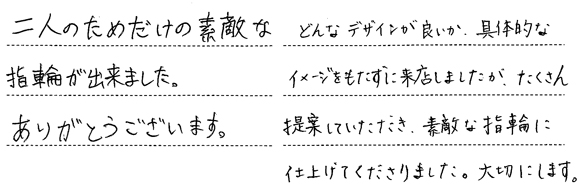 二人のためだけの素敵な
指輪が出来ました。
ありがとうございます。
どんなデザインが良いか、具体的な
イメージをもたずに来店しましたが、たくさん
提案していただき、素敵な指輪に
仕上げてくださりました。大切にします。